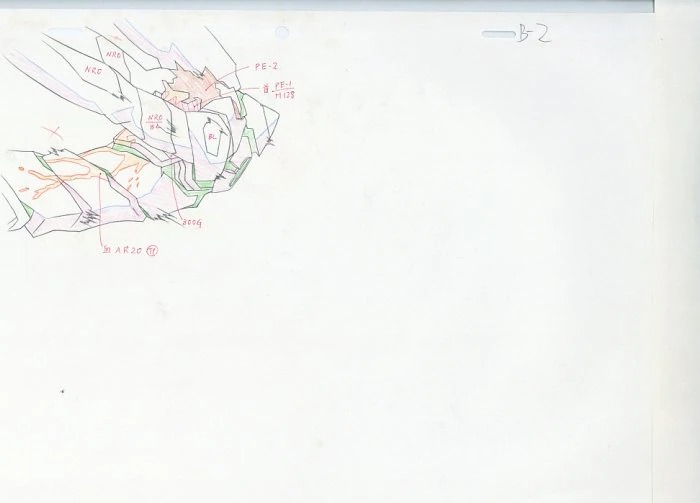 B-2
NRO
NRO
PE-2
首 PE-1
M128
NRO
BL
BL
300G
血 AR20